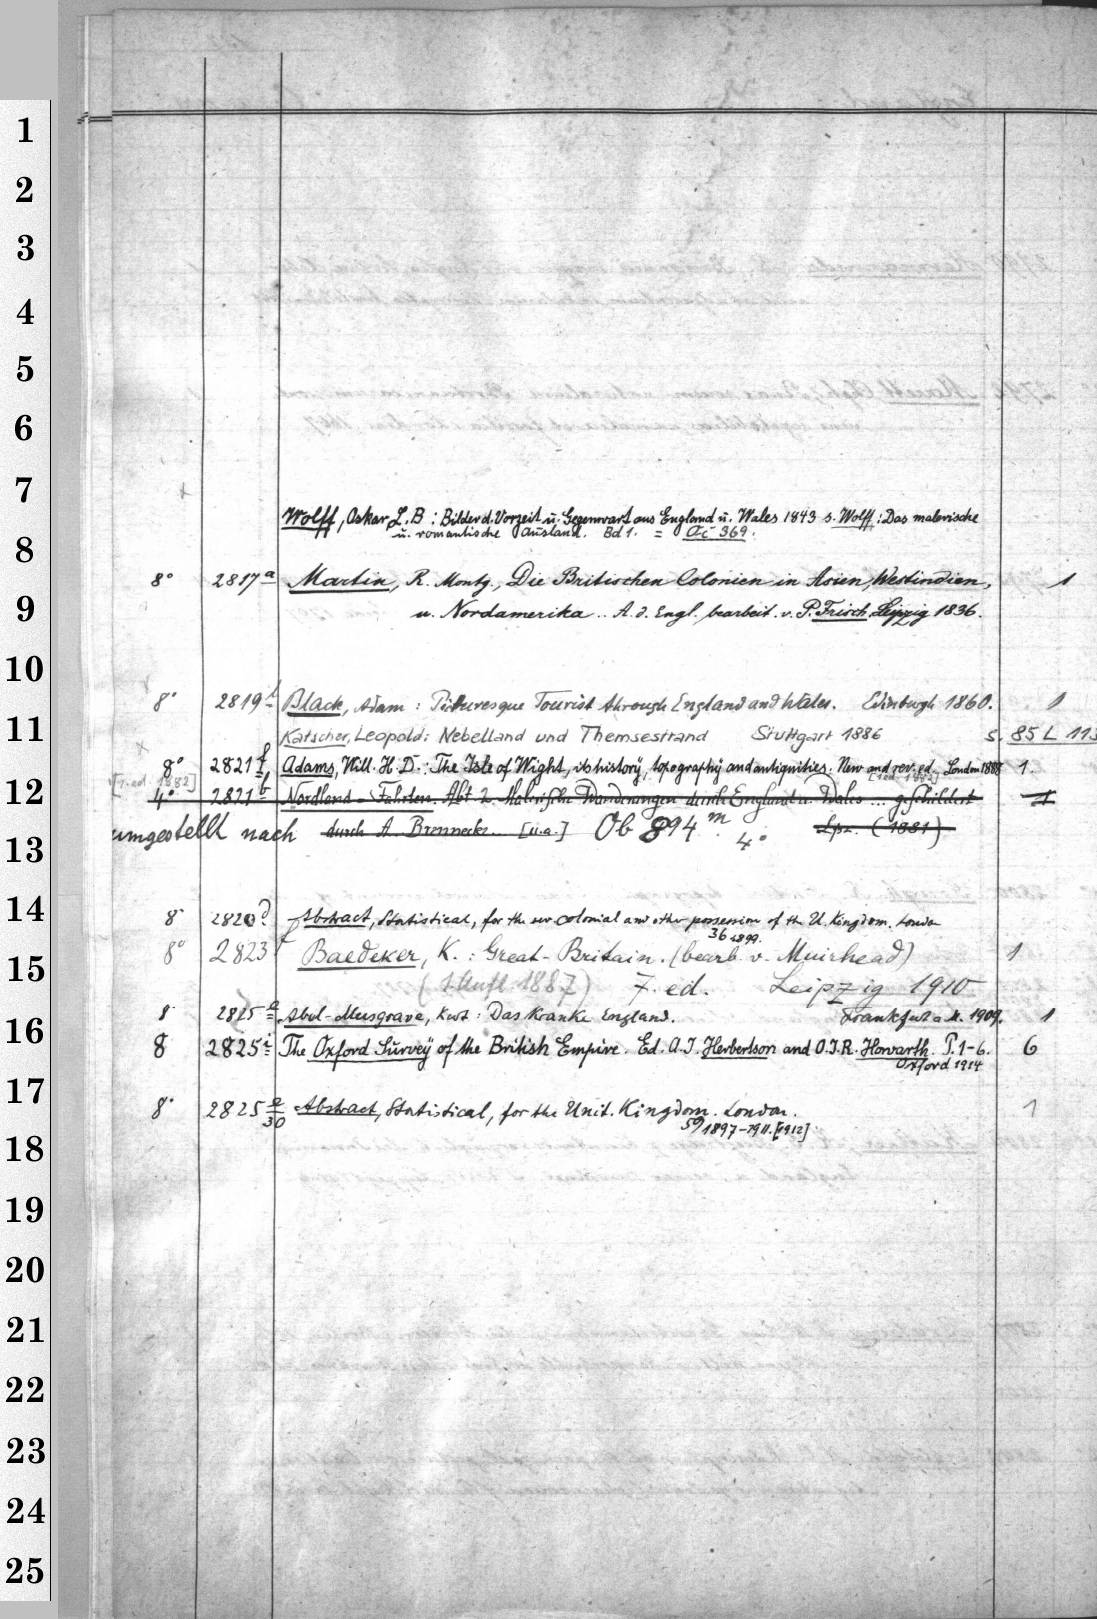 1
2
3
4
5
6
7
Wolff, Oskar L. B: Bilder d. Vorzeit u. Gegenwart aus England u. Wales 1843 s. Wolff: Das malerische
u. romantische Ausland. Bd 1. = Ac 369.
8
8° 2817 a Martin, R. Montg., Die Britischen Colonien in Asien, Westindien, 1
9
u. Nordamerika .. A. d. Engl. bearbeit. v. P. Frisch. Leipzig 1836.
10
8° 2819 Black, Adam: Picturesque Tourist through England and Wales. Edinburgh 1860. 1
11
Katscher, Leopold: Nebelland und Themsestrand Stuttgart 1886 s. 85 L 113
8° 2821 f Adams, Will. H. D.: The Isle of Wight, its history, topography and antiquities. New and rev. ed. London 1888 1.
[1. ed. 1882]
12
4° 2821 b Nordland-Fahrten. Abt 2. Malerische Wanderungen durch England u. Wales ... geschildert 1
umgestellt nach durch A. Brennecke ... [u.a.] Ob 894 m 4° Lpz. (1881)
13
14
8° 2820 Abstract, Statistical, for the colonial and other possession of the U. Kingdom. London
36 1899.
8° 2823 Baedeker, K.: Great-Britain. (bearb. v. Muirhead) 1
15
(1. Aufl. 1887) 7. ed. Leipzig 1910
8° 2825 a Abel-Musgrave, Kurt: Das Kranke England. Frankfurt a. M. 1909. 1
16
8 2825 i The Oxford Survey of the British Empire. Ed. A. J. Herbertson and O. J. R. Howarth. P. 1-6. 6
Oxford 1914
17
8° 2825 a/30 Abstract, Statistical, for the Unit. Kingdom. London. 1
59 1897-1911. [1912]
18
19
20
21
22
23
24
25